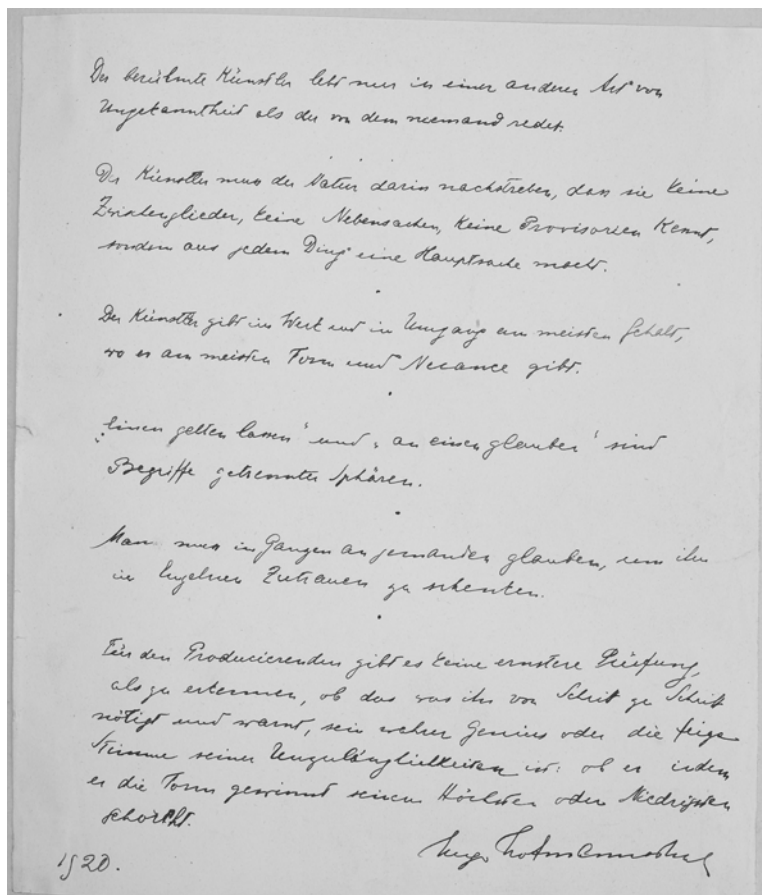 Der berühmte Künstler lebt nur in einer anderen Art von
Ungekanntheit als der von dem niemand redet.
Der Künstler muss der Natur darin nachstreben, dass sie keine
Zwischenglieder, keine Nebensachen, keine Provisorien kennt,
sondern aus jedem Ding eine Hauptsache macht.
Der Künstler gibt im Werk und im Umgang am meisten Gehalt,
wo er am meisten Form und Nuance gibt.
„Einen gelten lassen" und „an einen glauben" sind
Begriffe getrennter Sphären.
Man muss im Ganzen an jemanden glauben, um ihm
im Einzelnen Zutrauen zu schenken.
Für den Producierenden gibt es keine ernstere Prüfung,
als zu erkennen, ob das was ihn von Schritt zu Schritt
nötigt und warnt, sein wahrer Genius oder die feige
Stimme seiner Unzulänglichkeiten ist: ob er indem
er die Form gewinnt seinem Höchsten oder Niedrigsten
gehorcht.
Hugo Hofmannsthal
1920.